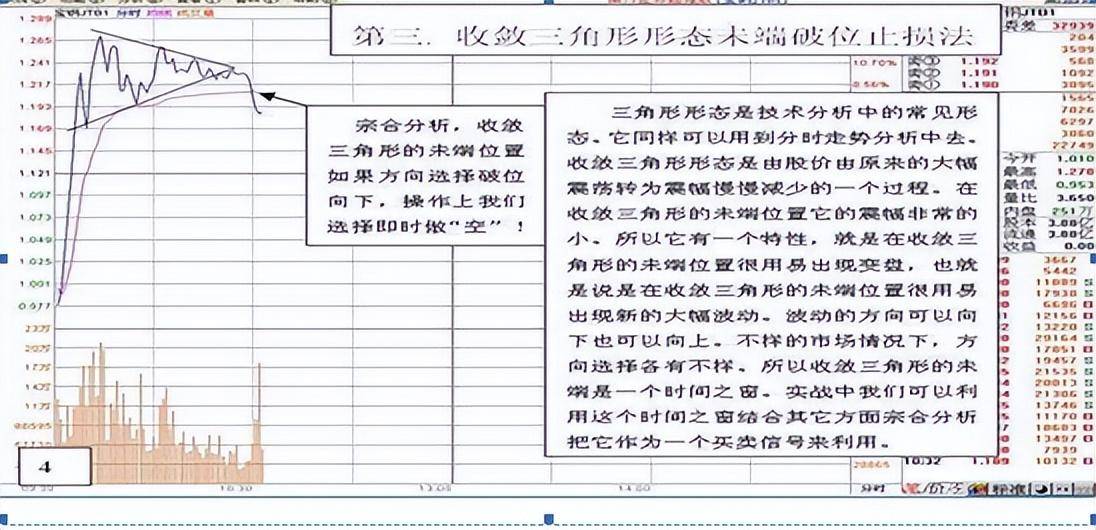 第三. 收敛三角形形态末端破位止损法
JT01 分时
1.289
1.265
1.241
1.217
1.193
1.169
1.145
1.121
1.097
1.073
1.049
1.025
1.001
0.977
23万
20万
17万
14万
11万
宗合分析，收敛
三角形的末端位置
如果方向选择破位
向下，操作上我们
选择即时做“空”！
三角形形态是技术分析中的常见形
态。它同样可以用到分时走势分析中去。
收敛三角形形态是由股价由原来的大幅
震荡转为震幅慢慢减少的一个过程。在
收敛三角形的末端位置它的震幅非常的
小。所以它有一个特性，就是在收敛三
角形的末端位置很用易出现变盘，也就
是说是在收敛三角形的末端位置很用易
出现新的大幅波动。波动的方向可以向
下也可以向上。不样的市场情况下，方
向选择各有不样。所以收敛三角形的末
端是一个时间之窗。实战中我们可以利
用这个时间之窗结合其它方面宗合分析
把它作为一个买卖信号来利用。
10.70%
JT01
32939
204
3599
1.192 560
1.191 1092
1.190
7026
6297
3060
22749
今开 1.010
最高 1.270
最低 0.953
量比 3.650
内盘 251万
股本 3.00亿
流通 3.00亿
收益 0.00
5442
13220
20164
19457
21535
20013
21306
13746
11170
13497
7939
10:32 1.189 10132
4
10:30
13:00
14:00
分时
笔
价
标准